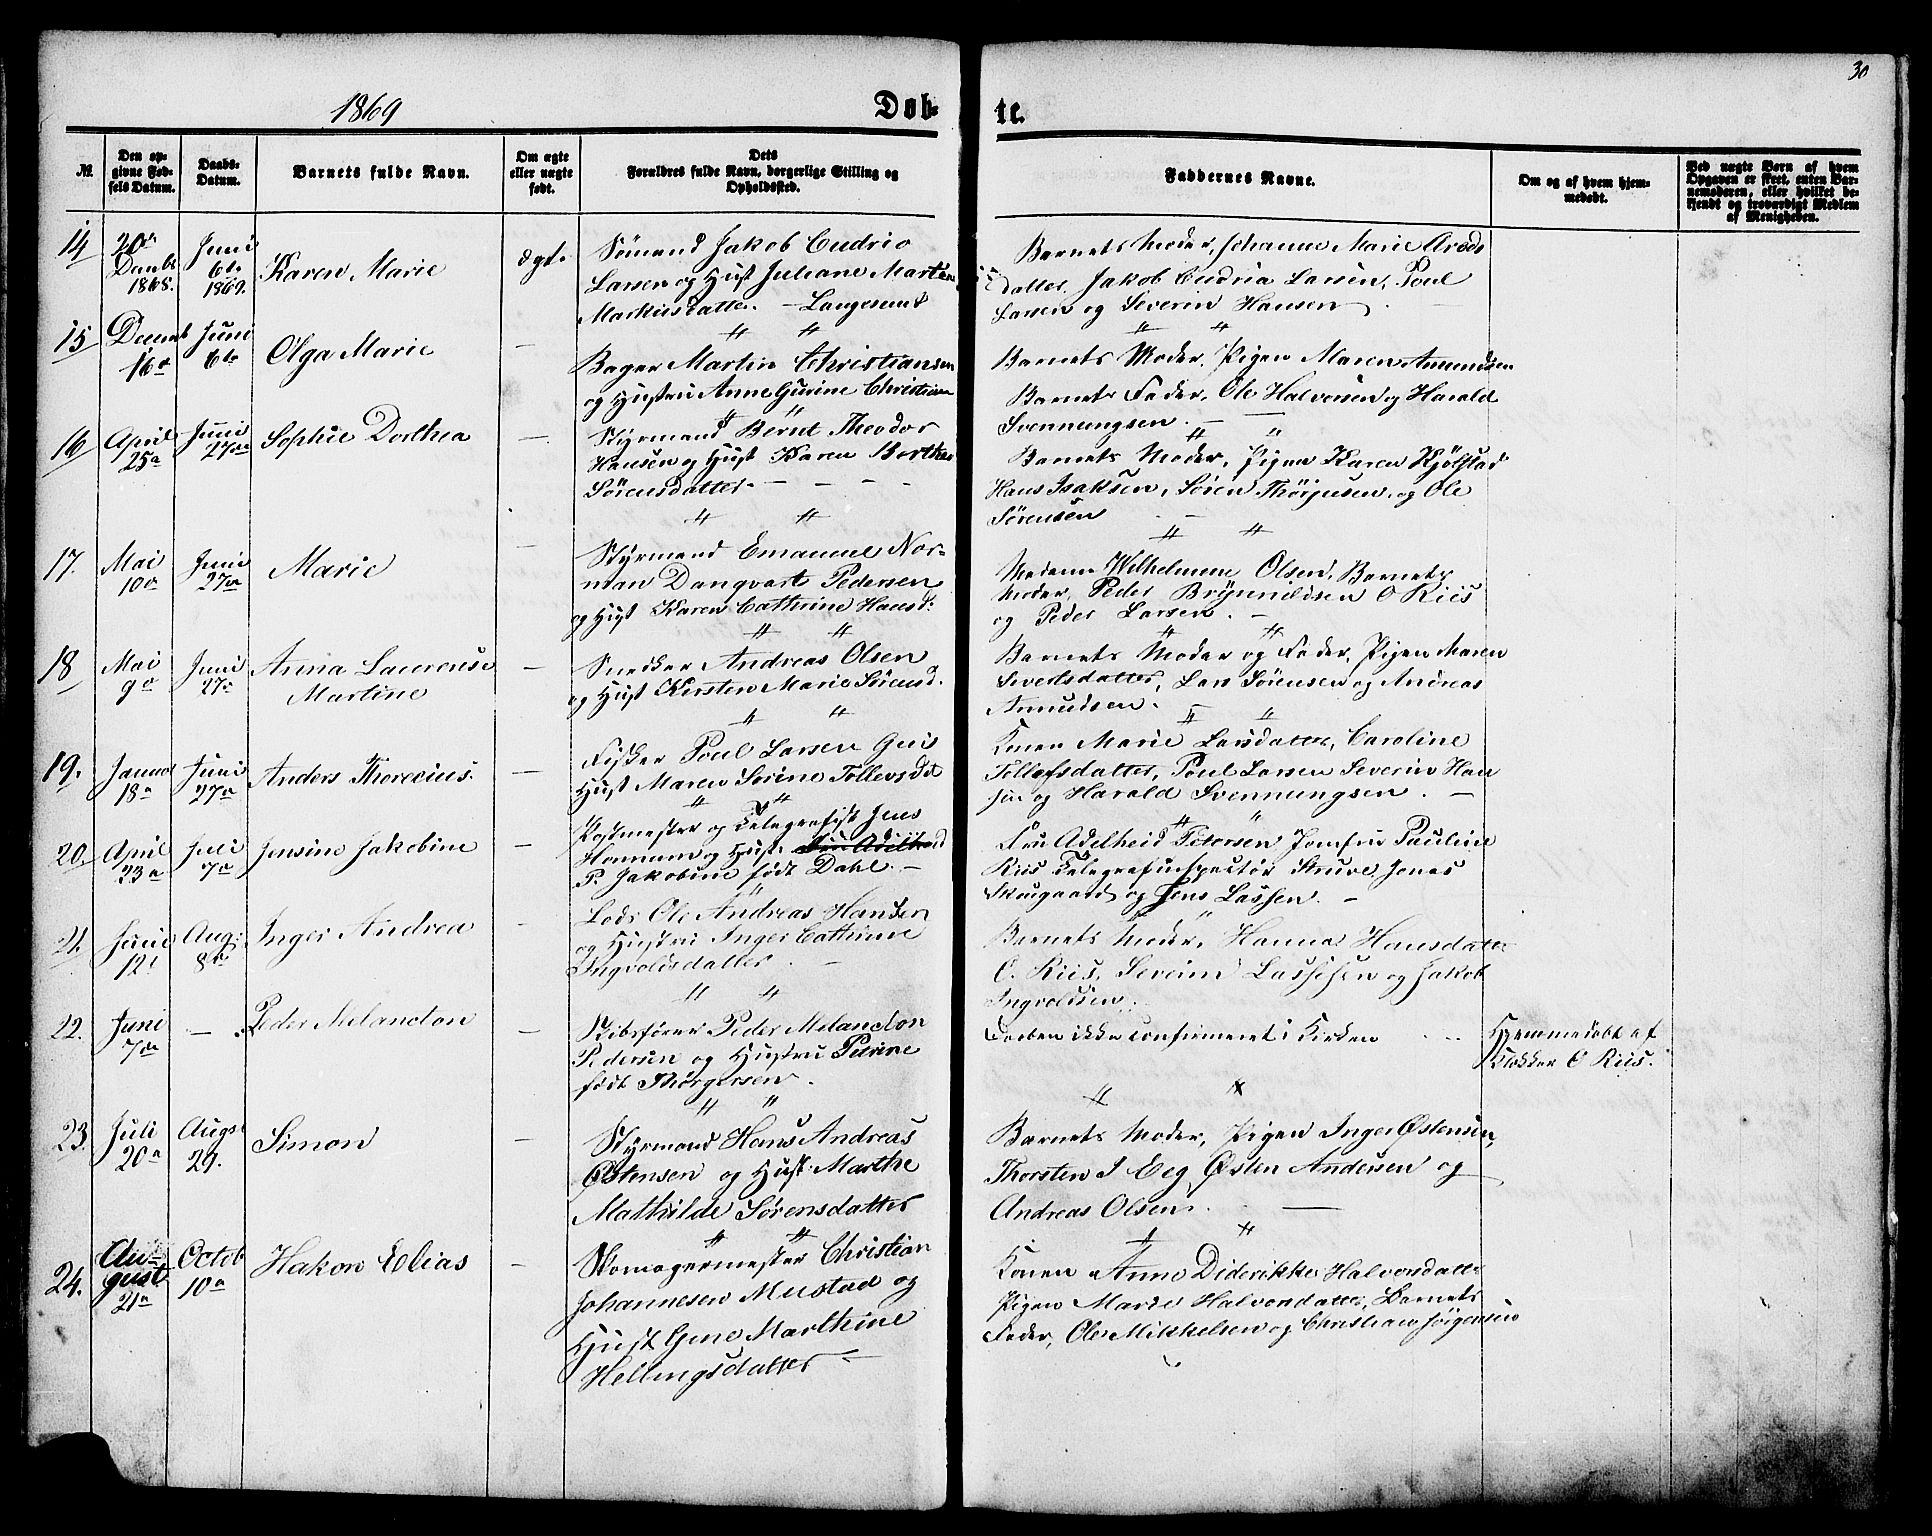 30
1869
Døb-
te.
№
Den op-
givne Fød-
sels Datum.
Daabs-
Datum.
Barnets fulde Navn.
Om ægte
eller uægte
født.
Dets
Forældres fulde Navn, borgerlige Stilling og
Opholdssted.
Faddernes Navne.
Om og af hvem hjem-
medøbt.
Ved uægte Børn af hvem
Opgaven er skeet, enten Bar-
nemoderen, eller hvilket be-
kjendt og troværdigt Medlem
af Menigheden.
14
20de
1868.
Juni
6te
1869.
Karen Marie
ægt.
Sømand Jakob Cudrio
Larsen og Hust Juliane Marten
Markusdatter. – Langesund
Barnets Moder, Johanne Marie Arods
datter. Jakob Cudria Larsen, Poul
Larsen og Severin Hansen
15
Decemb
16de
Juni
6te
Olga Marie
—
Bager Martin Christiansen
og Hustru Anne Gurine Christian
Barnets Moder. Pigen Maren Amundsen
Barnets Fader, Ole Halvorsen og Harald
Svennungsen. —
16
April
25a
Juni
27de
Sophie Dorthea
—
Styrmand Bernt Theodor
Hansen og Hust Karen Borthea
Sörensdatter – – – –
Barnets Moder, Pigen Karen Kjölstad
Hans Isaksen, Sören Thörjusen, og Ole
Sörensen
17.
Mai
10de
Juni
27de
Marie
—
Styrmand Emanuel Nor-
man Danqvart Pedersen
og Hust Karen Cathrine Hansd:
Madam Wilhelmine Olsen, Barnets
Moder, Peder Brynnildsen O Riis
og Peder Larsen. —
18
Mai
9a
Juni
27a
Anna Laurense
Martine
—
Snedker Andreas Olsen
og Hust Kirsten Marie Sörensd.
Barnets Moder og Fader, Pigen Maren
Sivertsdatter, Lars Sörensen og Andreas
Amundsen.
19.
Januar
18a
Juni
27a
Anders Thorecius.
—
Fisker Poul Larsen Guis
Hust Maren Sorine Tollevsdt
Konen Marie Larsdatter, Caroline
Tollefsdatter, Poul Larsen Severin Han
sen og Harald Svennungsen. —
20.
April
23a
Juli
7a
Jensine Jakobine
—
Postmester og Telegrafist Jens
Homann og Hust. Fru Adelheid
P. Jakobine født Dahl. —
Fru Adelheid Petersen Jomfru Pauline
Riis Telegrafinspectør Struve Jonas
Skougaard og Jens Lassen. —
21.
Juni
12t
Aug:
8de
Inger Andrea
Lods Ole Andreas Hansen
og Hustru Inger Cathrine
Ingvoldsdatter. —
Barnets Moder, Hanna Hansdatter
O. Riis, Severin Lassesen og Jakob
Ingvoldsen.
22.
Juni
7de
—
Peder Melancton
—
Skibsfører Peder Melancton
Pedersen og Hustru Petrine
født Thörgersen.
Daaben ikke confirmeret i Kirken
Hjemmedøbt af
Klokker O Riis.
23.
Juli
20a
Augst
29.
Simon
—
Styrmand Hans Andreas
Østensen og Hust: Marthe
Mathilde Sørensdatter
Barnets Moder, Pigen Inger Østensen,
Thorsten I Eeg, Østen Andersen og
Andreas Olsen. —
24.
Au-
gust
21a
Octob
10a
Hakon Elias
—
Skomagermester Christian
Johannesen Mustad og
Hust Gene Marthine
Hellingsdatter —
Konen Anne Diderikke Halvorsdatter
Pigen Marie Halvorsdatter, Barnets
Fader, Ole Mikkelsen og Christian Jörgensen